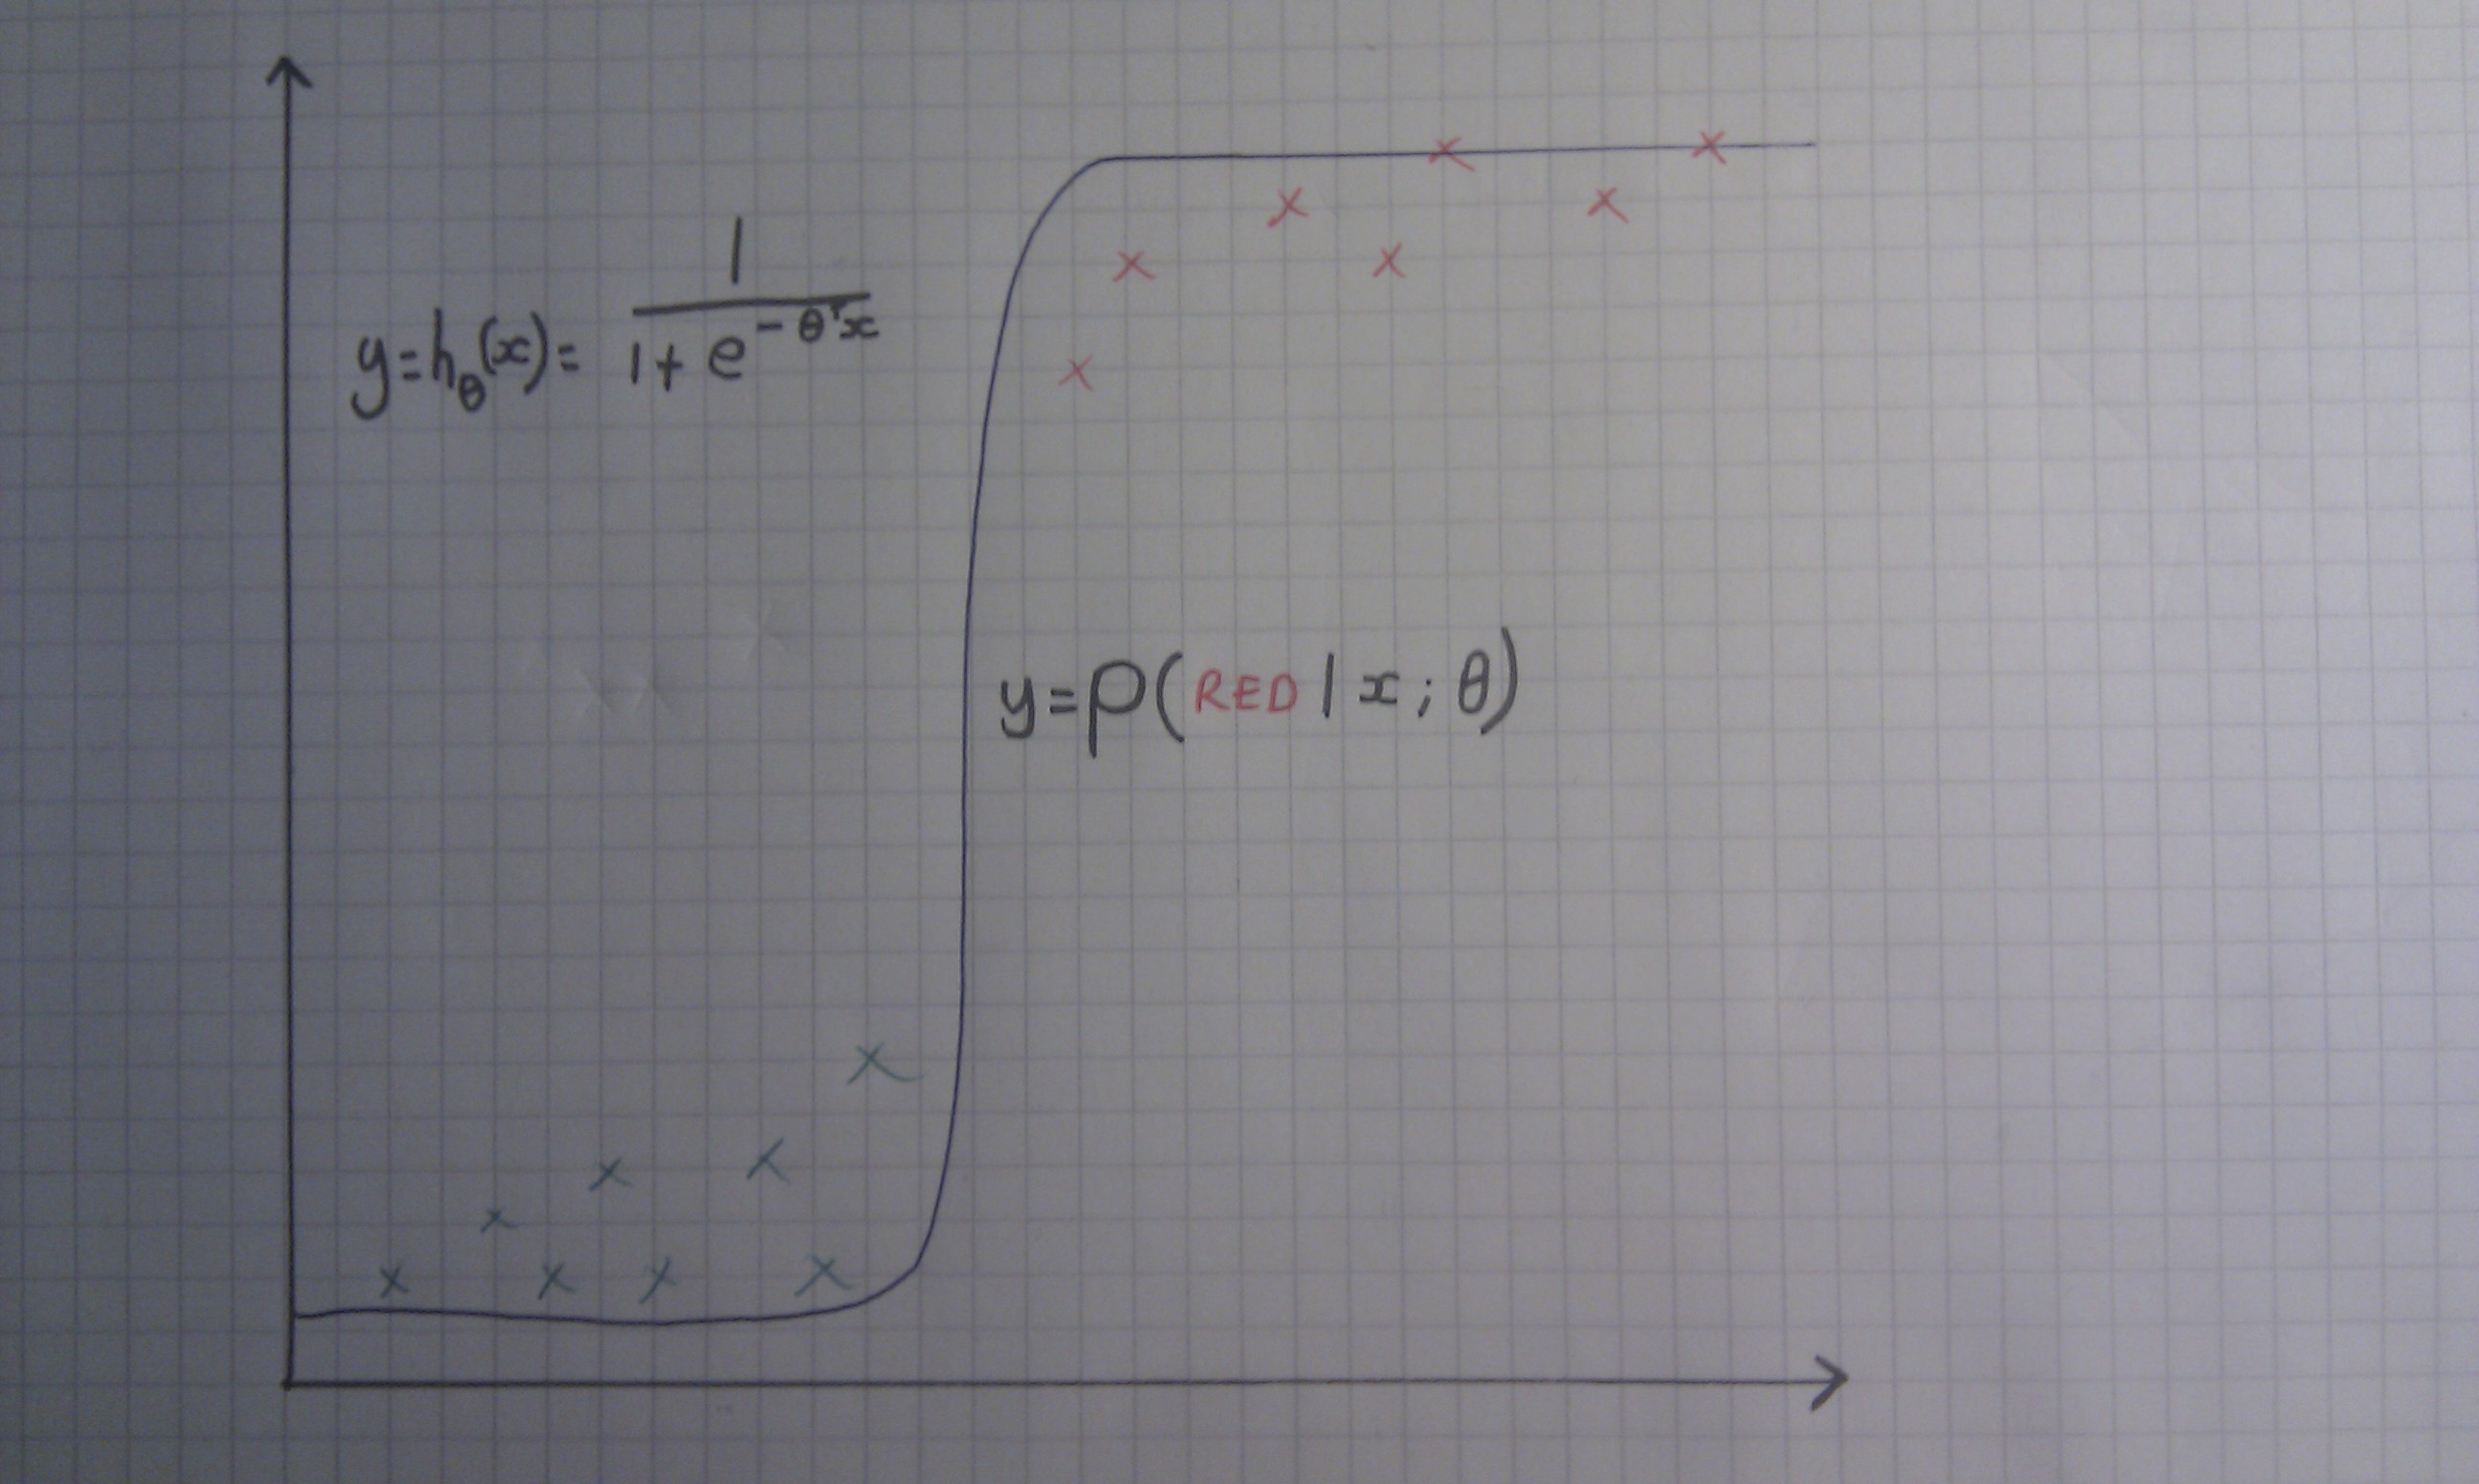 y=h_θ(x)= 1/(1+e^{-θᵀx})
y=P(RED|x;θ)